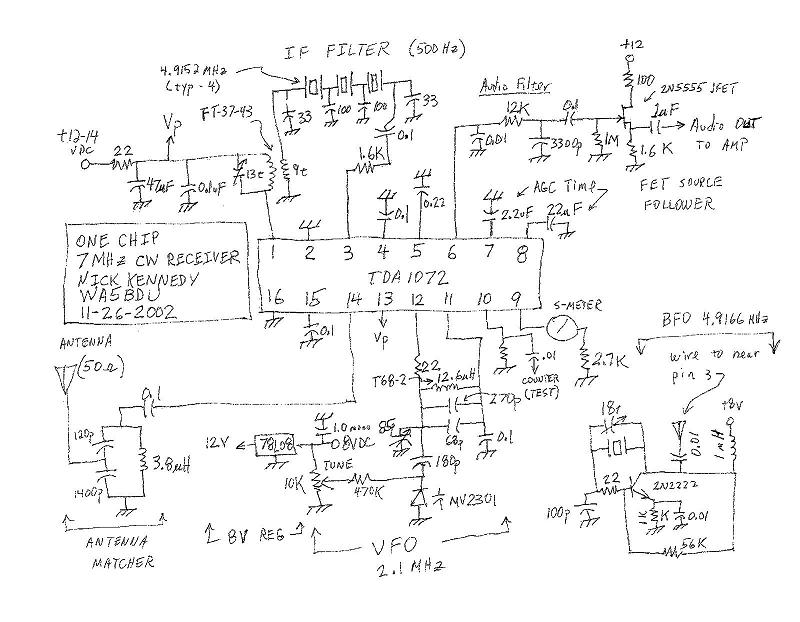 IF FILTER (500 Hz)
4.9152 MHz
(typ - 4)
33
100
100
33
FT-37-43
Vp
+12-14
VDC
22
47uF
0.1uF
13t
9t
0.1
1.6K
0.1
0.22
Audio Filter
12K
0.1
0.01
3300p
1M
+12
100
2N5555 JFET
1uF
Audio OUT
TO AMP
1.6K
FET SOURCE
FOLLOWER
AGC Time
2.2uF
22uF
ONE CHIP
7MHz CW RECEIVER
NICK KENNEDY
WA5BDU
11-26-2002
1 2 3 4 5 6 7 8
TDA1072
16 15 14 13 12 11 10 9
0.1
Vp
S-METER
2.7K
.01
COUNTER
(TEST)
ANTENNA
(50Ω)
0.1
120p
1400p
3.8uH
ANTENNA
MATCHER
22
T68-2
12.6uH
270p
68p
0.1
180p
MV2301
12V
78L08
8VDC
TUNE
10K
470K
8V REG
VFO
2.1 MHz
BFO 4.9166 MHz
wire to near
pin 3
18t
22
100p
2N2222
0.01
+8v
1mH
1K
0.01
56K